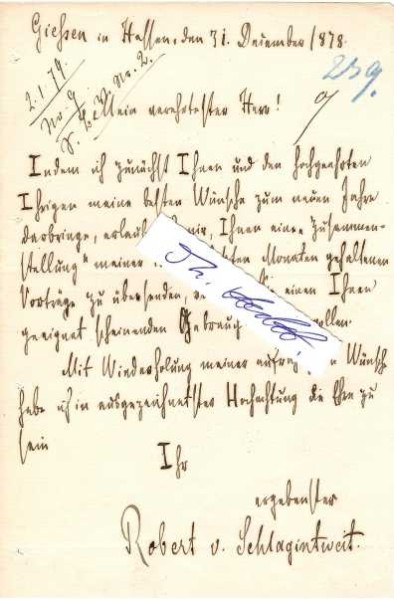 Giessen in Hessen, den 31. Dezember 1878.
2.1.79.
No. 9
259.
Mein verehrtester Herr!
Indem ich zunächst Ihnen und den hochgeehrten
Ihrigen meine besten Wünsche zum neuen Jahre
darbringe, erlaube ich mir, Ihnen eine „Zusammen-
stellung“ meiner in den Monaten gehaltenen
Vorträge zu übersenden, Sie einen Ihnen
geeignet scheinenden Gebrauch wollen.
Mit Wiederholung meiner aufrichtigen Wünsche
habe ich in ausgezeichnetster Hochachtung die Ehre zu
sein
Ihr
ergebenster
Robert v. Schlagintweit.